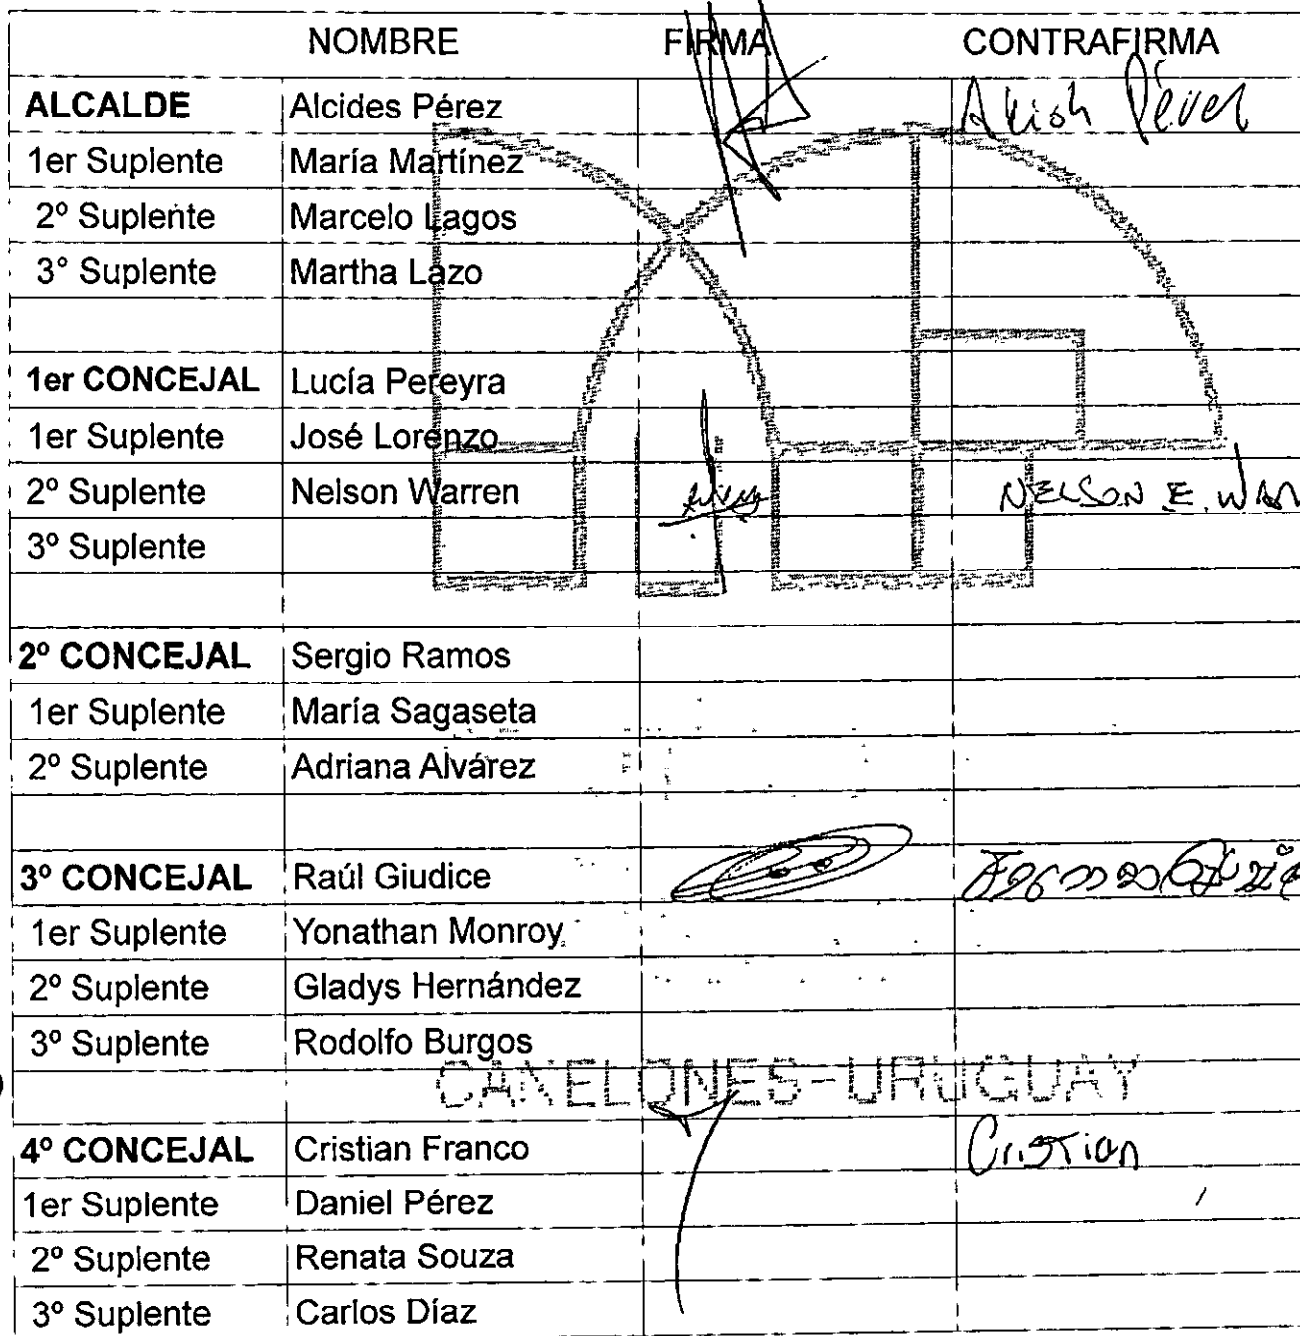 NOMBRE FIRMA CONTRAFIRMA
ALCALDE Alcides Pérez
1er Suplente María Martínez
2º Suplente Marcelo Lagos
3° Suplente Martha Lazo
1er CONCEJAL Lucía Pereyra
1er Suplente José Lorenzo
2º Suplente Nelson Warren NELSON E.
3º Suplente
2º CONCEJAL Sergio Ramos
1er Suplente María Sagaseta
2º Suplente Adriana Alvárez
3º CONCEJAL Raúl Giudice
1er Suplente Yonathan Monroy
2º Suplente Gladys Hernández
3º Suplente Rodolfo Burgos
CANELONES-URUGUAY
4º CONCEJAL Cristian Franco Cristian
1er Suplente Daniel Pérez
2º Suplente Renata Souza
3º Suplente Carlos Díaz